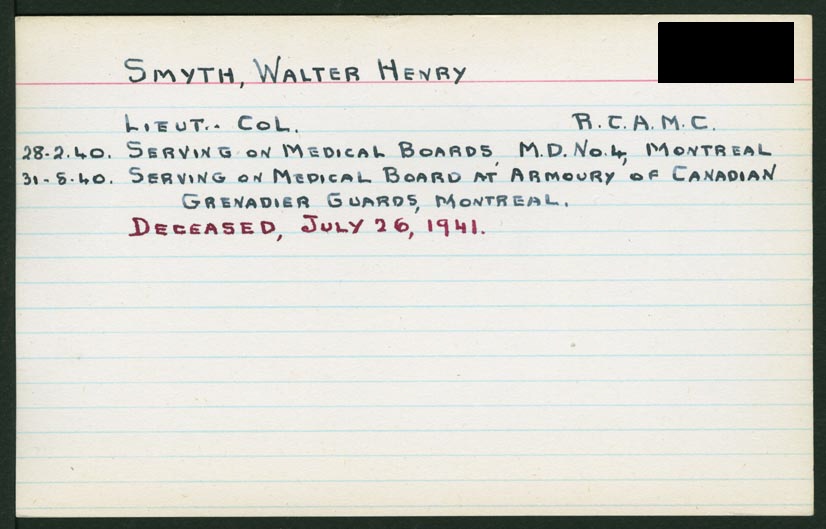 SMYTH, WALTER HENRY
LIEUT.. COL. R.C.A.M.C.
28-2.40. SERVING ON MEDICAL BOARDS, M.D. NO.4, MONTREAL
31-8-40. SERVING ON MEDICAL BOARD AT ARMOURY OF CANADIAN
GRENADIER GUARDS, MONTREAL.
DECEASED, JULY 26, 1941.